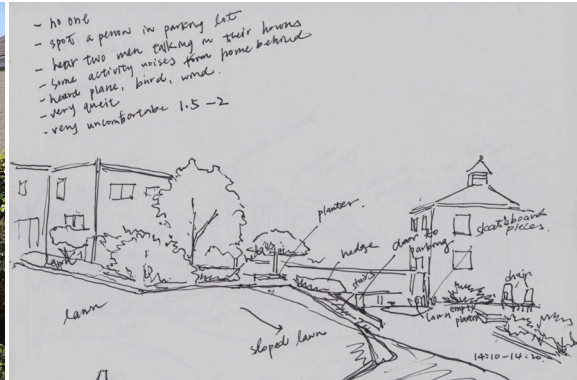 - no one
- spot a person in parking lot
- hear two men talking in their homes
- some activity noises from home behind
- heard plane, bird, wind.
- very queit
- very uncomfortabe 1.5-2
planter.
hedge
door to
parking
skateboard
pieces.
stairs
chair
lawn
empty
planter
lawn
sloped lawn
14:10-14:20